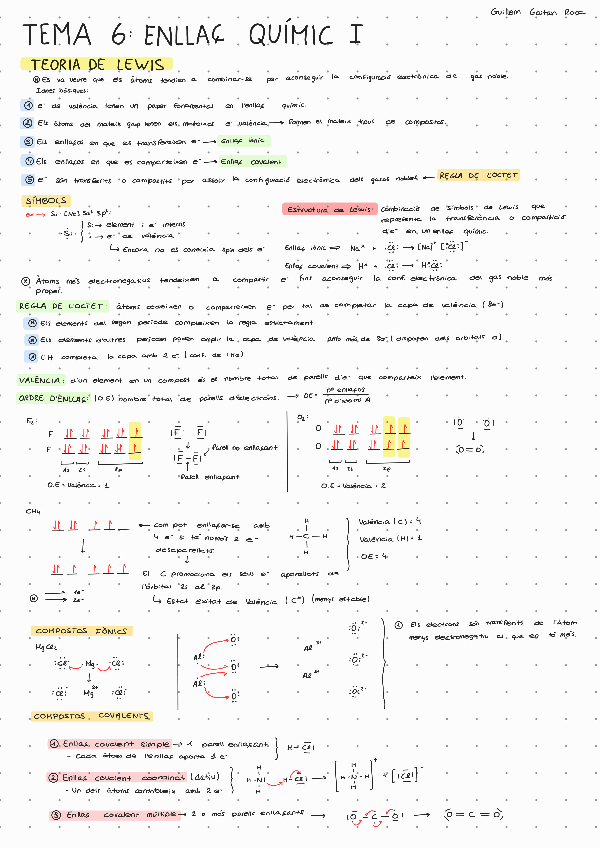 Guillem Gaitan Roca
TEMA 6: ENLLAÇ QUÍMIC I
TEORIA DE LEWIS
Es va veure que els àtoms tendien a combinar-se per aconseguir la configuració electrònica de gas noble.
Idees bàsiques:
① e⁻ de valència tenen un paper fonamental en l'enllaç químic.
② Els àtoms del mateix grup tenen els mateixos e⁻ valència → Formen el mateix tipus de compostos.
③ Els enllaços en que es transfereixen e⁻ → Enllaç iònic
④ Els enllaços en que es comparteixen e⁻ → Enllaç covalent
⑤ e⁻ són transferits o compartits per assolir la configuració electrònica dels gasos nobles ← REGLA DE L'OCTET
SÍMBOLS
Si: [Ne] 3s² 3p²
Si → element i e⁻ interns
→ e⁻ de valència
↳ Encara no es coneixia spin dels e⁻
Estructura de Lewis: Combinació de símbols de Lewis que
representa la transferència o compartició
d'e⁻ en un enllaç químic.
Enllaç iònic ⇒ Na• + •Cl: → [Na]⁺ [:Cl:]⁻
Enllaç covalent ⇒ H• + •Cl: → H•Cl:
Àtoms més electronegatius tendeixen a compartir e⁻ fins aconseguir la conf. electrònica del gas noble més
proper.
REGLA DE L'OCTET: àtoms cedeixen o comparteixen e⁻ per tal de completar la capa de valència (8e⁻)
Els elements del segon període compleixen la regla estrictament
Els elements d'altres períodes poden ampliar la capa de valència amb més de 8e⁻ (disposen dels orbitals d)
L'H completa la capa amb 2 e⁻ (conf. de l'He)
VALÈNCIA: d'un element en un compost és el nombre total de parells d'e⁻ que comparteix lliurement.
ORDRE D'ENLLAÇ: (O.E) nombre total de parells d'electrons. → OE = nº enllaços / nº d'àtoms A
F₂:
F
F
1s 2s 2p
O.E = València = 1
|F• •F|
Parell no enllaçant
|F–F|
Parell enllaçant
O₂:
O
O
1s 2s 2p
O.E = València = 2
|O: :O|
⟨O=O⟩
CH₄
← com pot enllaçar-se amb
4 e⁻ si té només 2 e⁻
desaparellats
El C promociona els seus e⁻ aparellats de
l'orbital 2s al 2p
↳ Estat excitat de València (C*) (menys estable)
1e⁻
2e⁻
H
H–C–H
H
València (C) = 4
València (H) = 1
OE = 4
COMPOSTOS IÒNICS
MgCl₂
:Cl• •Mg• •Cl:
:Cl:⁻ Mg²⁺ :Cl:⁻
Al• Al•
:O: :O: :O:
Al³⁺
Al³⁺
:O:²⁻
:O:²⁻
:O:²⁻
Els electrons són transferits de l'àtom
menys electronegatiu al que en té més.
COMPOSTOS COVALENTS
① Enllaç covalent simple → 1 parell enllaçant
- Cada àtom de l'enllaç aporta 1 e⁻
H–Cl|
② Enllaç covalent coordinat (datiu)
- Un dels àtoms contribueix amb 2 e⁻
H–N| H–Cl| → [H–N–H]⁺ + [|Cl|]⁻
③ Enllaç covalent múltiple → 2 o més parells enllaçants → |O–C–O| → ⟨O=C=O⟩